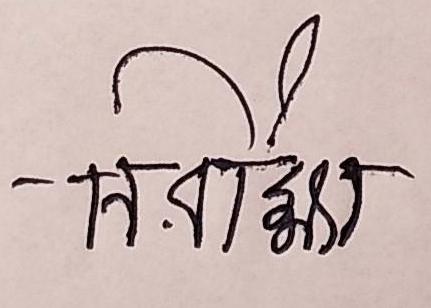 -নিরীক্ষা-